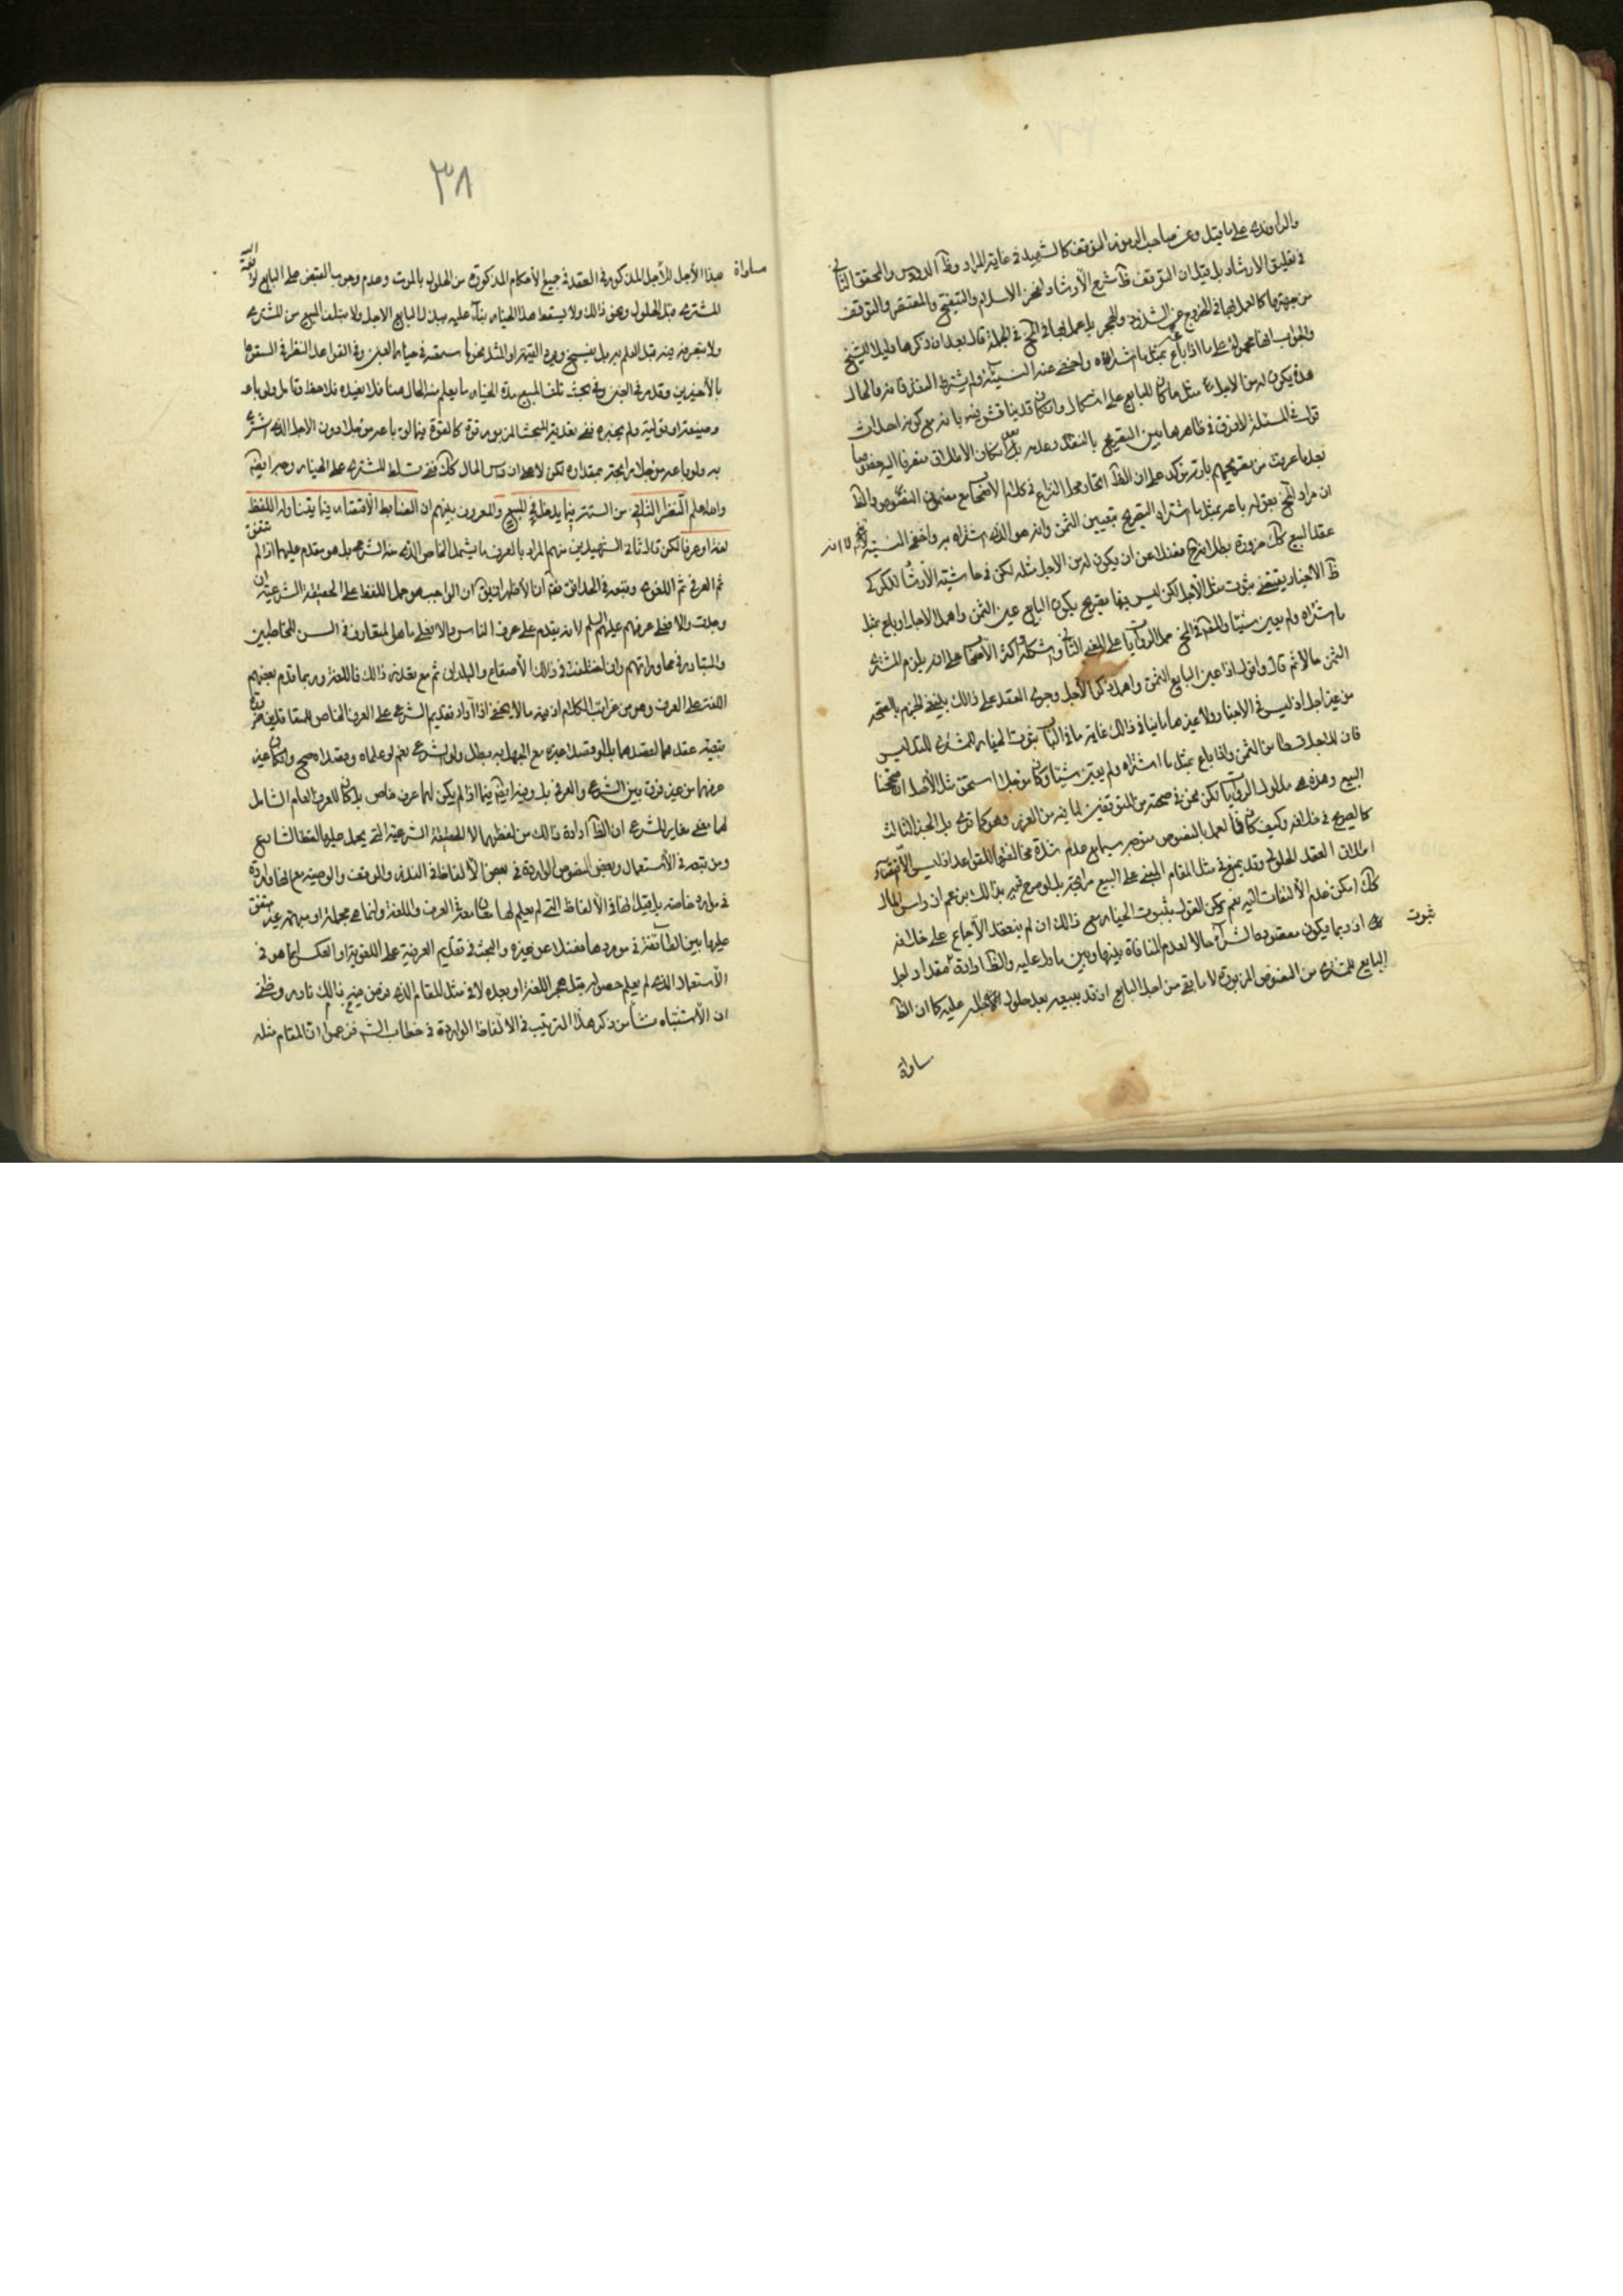 والراوندي على ما قيل وعن صاحب الرموز التوقف كالشهيد في غاية المراد وظ الدروس والمحقق الثاني
في تعليق الارشاد بل قيل ان التوقف ظ شرح الأرشاد لفخر الاسلام والتنقيح والمقتصر والتوقف
من جهتها كالعمل بها في الخروج عن الشذوذ والهجر بل عمل بها في المخ في الجملة قال بعد ان ذكرها دليلا للشيخ
والجواب انها محمولة على ما اذا باع بمثل ما اشتراه واخفى عنه النسيئة ولم يشترط النقد فانه والحال
هذه يكون له من الاجل مثل ما كان للبايع على اشكال وان كان قد يناقش فيه بانه مع كونه احداث
قول في المسئلة لا فرق في ظاهرها بين التصريح بالنقد وعدمه بل ان كان الاطلاق منصرفا اليه خصوصا
بعد ما عرفت من تصريحهم بانه مؤكد على ان الظ اتحاد محل النزاع في كلام الاصحاب مع مضمون النصوص والظ
ان مراد المخ بقوله باعه بمثل ما اشتراه التصريح بتعيين الثمن وانه هو الذي اشتراه به واخفى النسيئة
عقد البيع كك ضرورة بطلانه فضلا عن ان يكون له من الاجل مثله لكن في حاشية الأرشاد للكركي
ظ الاخبار يقتضي ثبوت مثل الأجل لكن ليس فيها تصريح بكون البايع عين الثمن واهمل الاجل او باع بمثل
ما اشتراه ولم يعين شيئا والمص في المخ حمل الروايات على المعنى الثاني واستشكله واكثر الأصحاب على انه يلزم المشتري
الثمن حالا ثم قال واقول اذا عين البايع الثمن واهمل ذكر الأجل وجرى العقد على ذالك ينبغي الجزم بالصحة
من غير اجل اذ ليس في الاخبار ولا غيرها ما ينافي ذالك غاية ما في الباب ثبوت الخيار للمشتري للتدليس
فان للاجل قسطا من الثمن واذا باع بمثل ما اشتراه ولم يعين شيئا وكان مؤجلا استحق مثل الأجل ان صححنا
البيع وهذه هي مدلول الروايات لكن نحن في صحته من المتوقفين لما فيه من الغرر وهو كما ترى بل الخبر الثالث
كالصريح في خلافه وكيف كان فالعمل بالنصوص متوجه سيما مع عدم شدة مخالفتها للقواعد اذ ليس الا اقتضاء
اطلاق العقد الحلول وقد يمنع في مثل المقام المبني على البيع مرابحة بل لو صرح به كذالك بزعم ان راس المال
كك امكن عدم الألتفات اليه نعم يمكن القول بثبوت الخيار مع ذالك ان لم ينعقد الأجماع على خلافه
ثبوت
اذ ربما يكون مقصوده الشراء حالا لعدم المنافاة بينها وبين ما دل عليه والظ ارادة مقدار اجل
البايع للمشتري من النصوص المزبورة لا ما بقي من اجل البايع اذ قد يبيعه بعد حلول الاجل عليه كما ان الظ
ساواة
٣٨
مساواة
هذا الأجل للأجل المذكور في العقد في جميع الأحكام المذكورة من الحلول بالموت وعدم وجوب القبض على البايع لو دفعه اليه
المشتري قبل الحلول ونحو ذالك ولا يسقط هذا الخيار بناء عليه ببذل البايع الاجل ولا بتلف المبيع من المشتري
ولا بتصرفه فيه قبل العلم به بل يفسخ ويرد القيمة او المثل نحو ما سمعته في خيار الغبن وفي القواعد النظر في السقوط
بالأخيرين وقد مر في الغبن وفي بحث تلف المبيع مدة الخيار ما يعلم منه الحال هنا فلا نعيده فلاحظ وتامل ولو باعه
وضيعة او تولية ولم يخبره ففي تعدية المبحث المزبور قوة كالقوة فيما لو باعه مؤجلا دون الاجل الذي اشترى
به ولو باعه مؤجلا مرابحة بمقداره لكن لاعدا ان راس المال كك ففي تسلط المشتري على الخيار وجه ايضا
والله اعلم النظر الثاني من الستة فيما يدخل في المبيع والمعروف بينهم ان الضابط الأقتصار فيما يتناوله اللفظ
لغة او عرفا لكن قال ثاني الشهيدين منهم المراد بالعرف ما يشمل الخاص الذي منه الشرعي بل هو مقدم عليهما اذا لم يتفق
ثم العرفي ثم اللغوي وتبعه في الحدائق نعم انا لاقل ان يق ان الواجب هو حمل اللفظ على الحقيقة الشرعية ان
وجدت والا فعلى عرفهم عليهم السلم لانه يقدم على عرف الناس والا فعلى ما هو المتعارف في السن المخاطبين
والمتبادر في محاوراتهم وان اختلفت في ذالك الأصقاع والبلدان ثم مع تعذر ذالك فاللغة وربما قدم بعضهم
اللغة على العرف وهو من غرائب الكلام اذ فيه ما لا يخفى اذا اراد تقديم الشرعي على العرف الخاص للمتعاقدين
بتبعية عقدهما لقصدهما بل لو قصدا غيره مع الجهل به بطل ولو الشرعي نعم لو علماه وقصداه صح وان كان غير
عرفهما من غير فرق بين الشرعي والعرفي بل وفيه ايضا فيما اذا لم يكن لهما عرف خاص بل كان للعرف العام الشامل
لهما معنى مغاير للشرعي ان الظ ارادة ذالك من لفظهما لا الحقيقة الشرعية التي يحمل عليها لفظ الشارع
ومن تبعه في الأستعمال وبعض النصوص الواردة في بعض الألفاظ في النذر والوقف والوصية مع انها واردة
في موارد خاصة بل قيل انها في الألفاظ التي لم يعلم لها معان معينة في العرف واللغة وانما هي مجملة او مبهمة غير متفق
عليها بين الطائفة في موردها فضلا عن غيره والبحث في تقديم العرفية على اللغوية او العكس انما هو في
الأستعمال الذي لم يعلم حصوله قبل هجر اللغة او بعده لا في مثل المقام الذي فرض فيه ذالك نادر وظني
ان الأشتباه نشأ من ذكر هذا الترتيب في الألفاظ الواردة في خطاب الشرع فزعموا ان المقام مثله